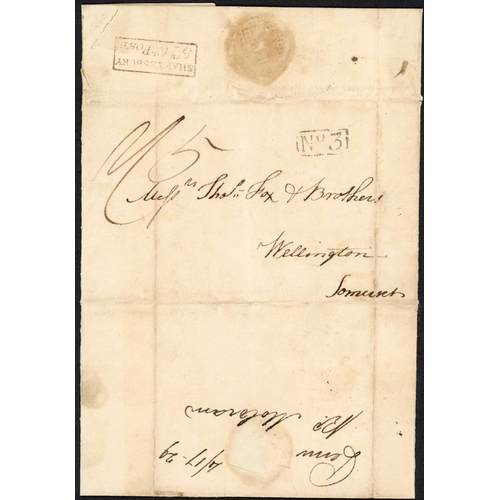 SHAFTESBURY
Py POST
No 3
5
Messrs Thos. Fox & Brothers
Wellington
Somerset
4/17-29